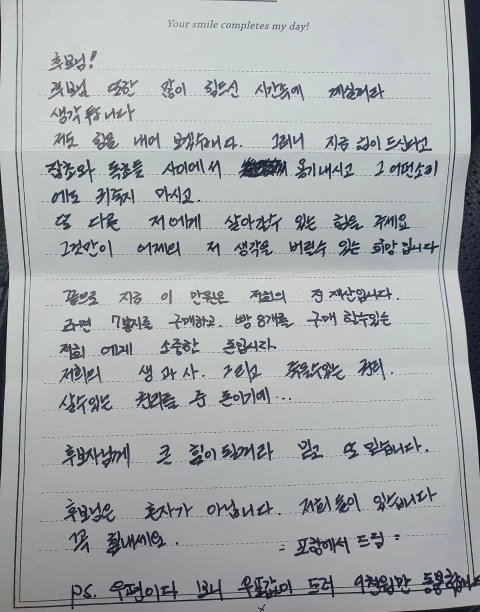 Your smile completes my day!
후보님!
후보님 또한 많이 힘드신 시간속에 계실꺼라
생각 합니다
저도 힘을 내어 보겠습니다. 그러니 지금 힘이 드신다고
잡초와 독초들 사이에서 용기내시고 그 어떤소리
에도 귀독지 마시고.
또 다른 저에게 살아갈수 있는 힘을 주세요
그것만이 어제의 저 생각을 버릴수 있는 희망 입니다
끝으로 지금 이 만원은 저희의 전 재산입니다.
라면 7봉지를 구매하고. 빵 8개를 구매 할수있는
저희 에게 소중한 돈입니다.
저희의 생과 사. 그리고 죽을수있는 권리.
살수있는 권리를 준 돈이기에...
후보자님께 큰 힘이 될꺼라 믿고 또 믿습니다.
후보님은 혼자가 아닙니다. 저희들이 있습니다
꼭 힘내세요.
- 포항에서 드림 -
PS. 우편이다 보니 우표값이 들어 9천원만 동봉합니다